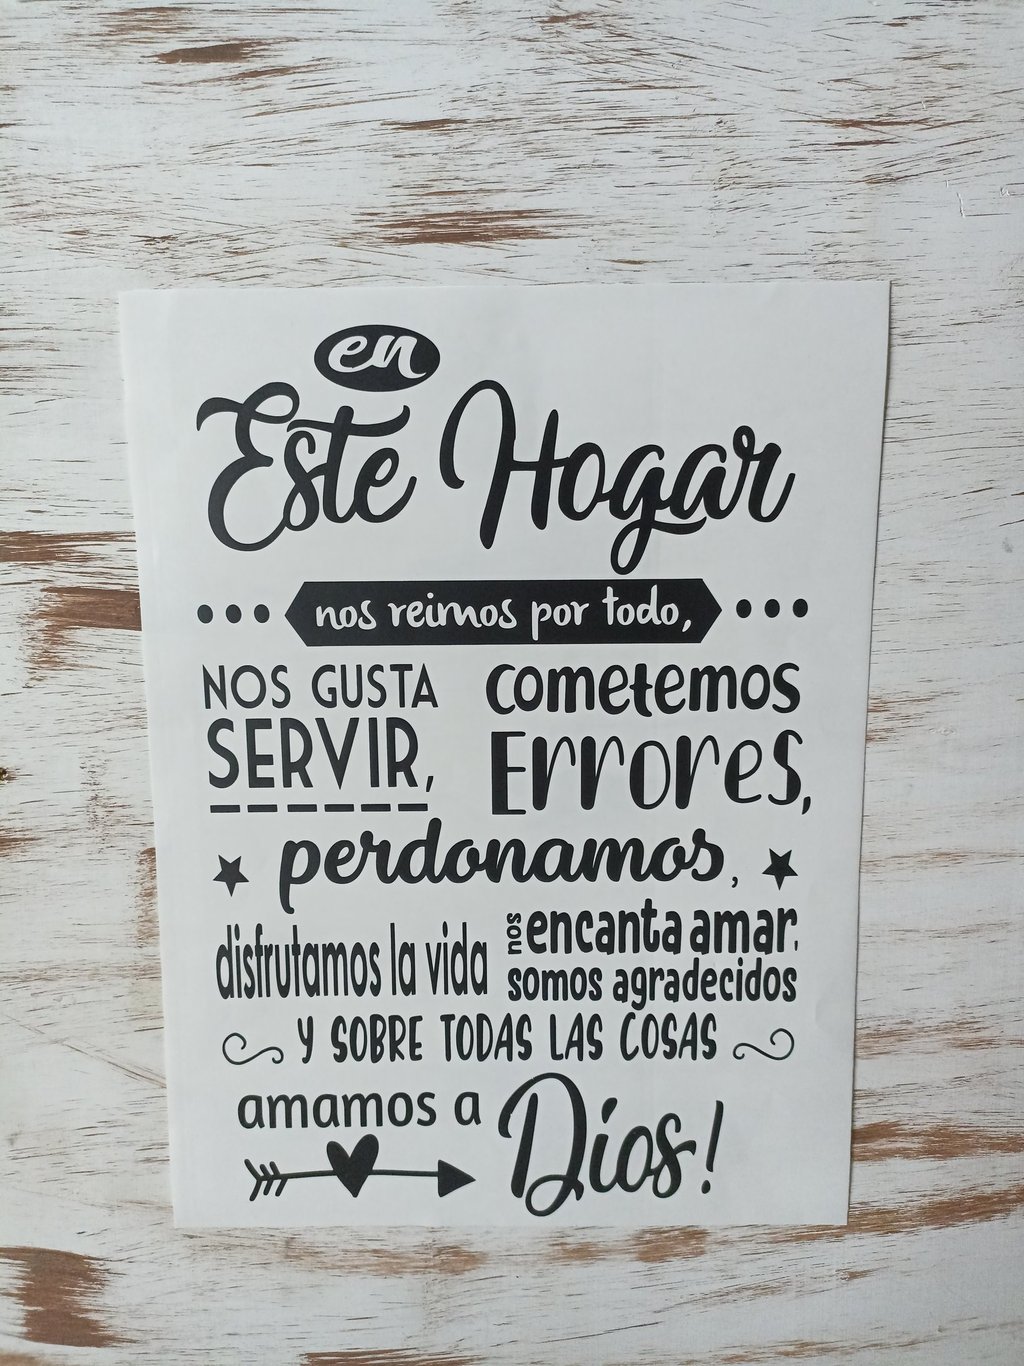 en
Este Hogar
nos reimos por todo,
NOS GUSTA
SERVIR,
cometemos
Errores,
perdonamos,
disfrutamos la vida
nos encanta amar,
somos agradecidos
Y SOBRE TODAS LAS COSAS
amamos a Dios!